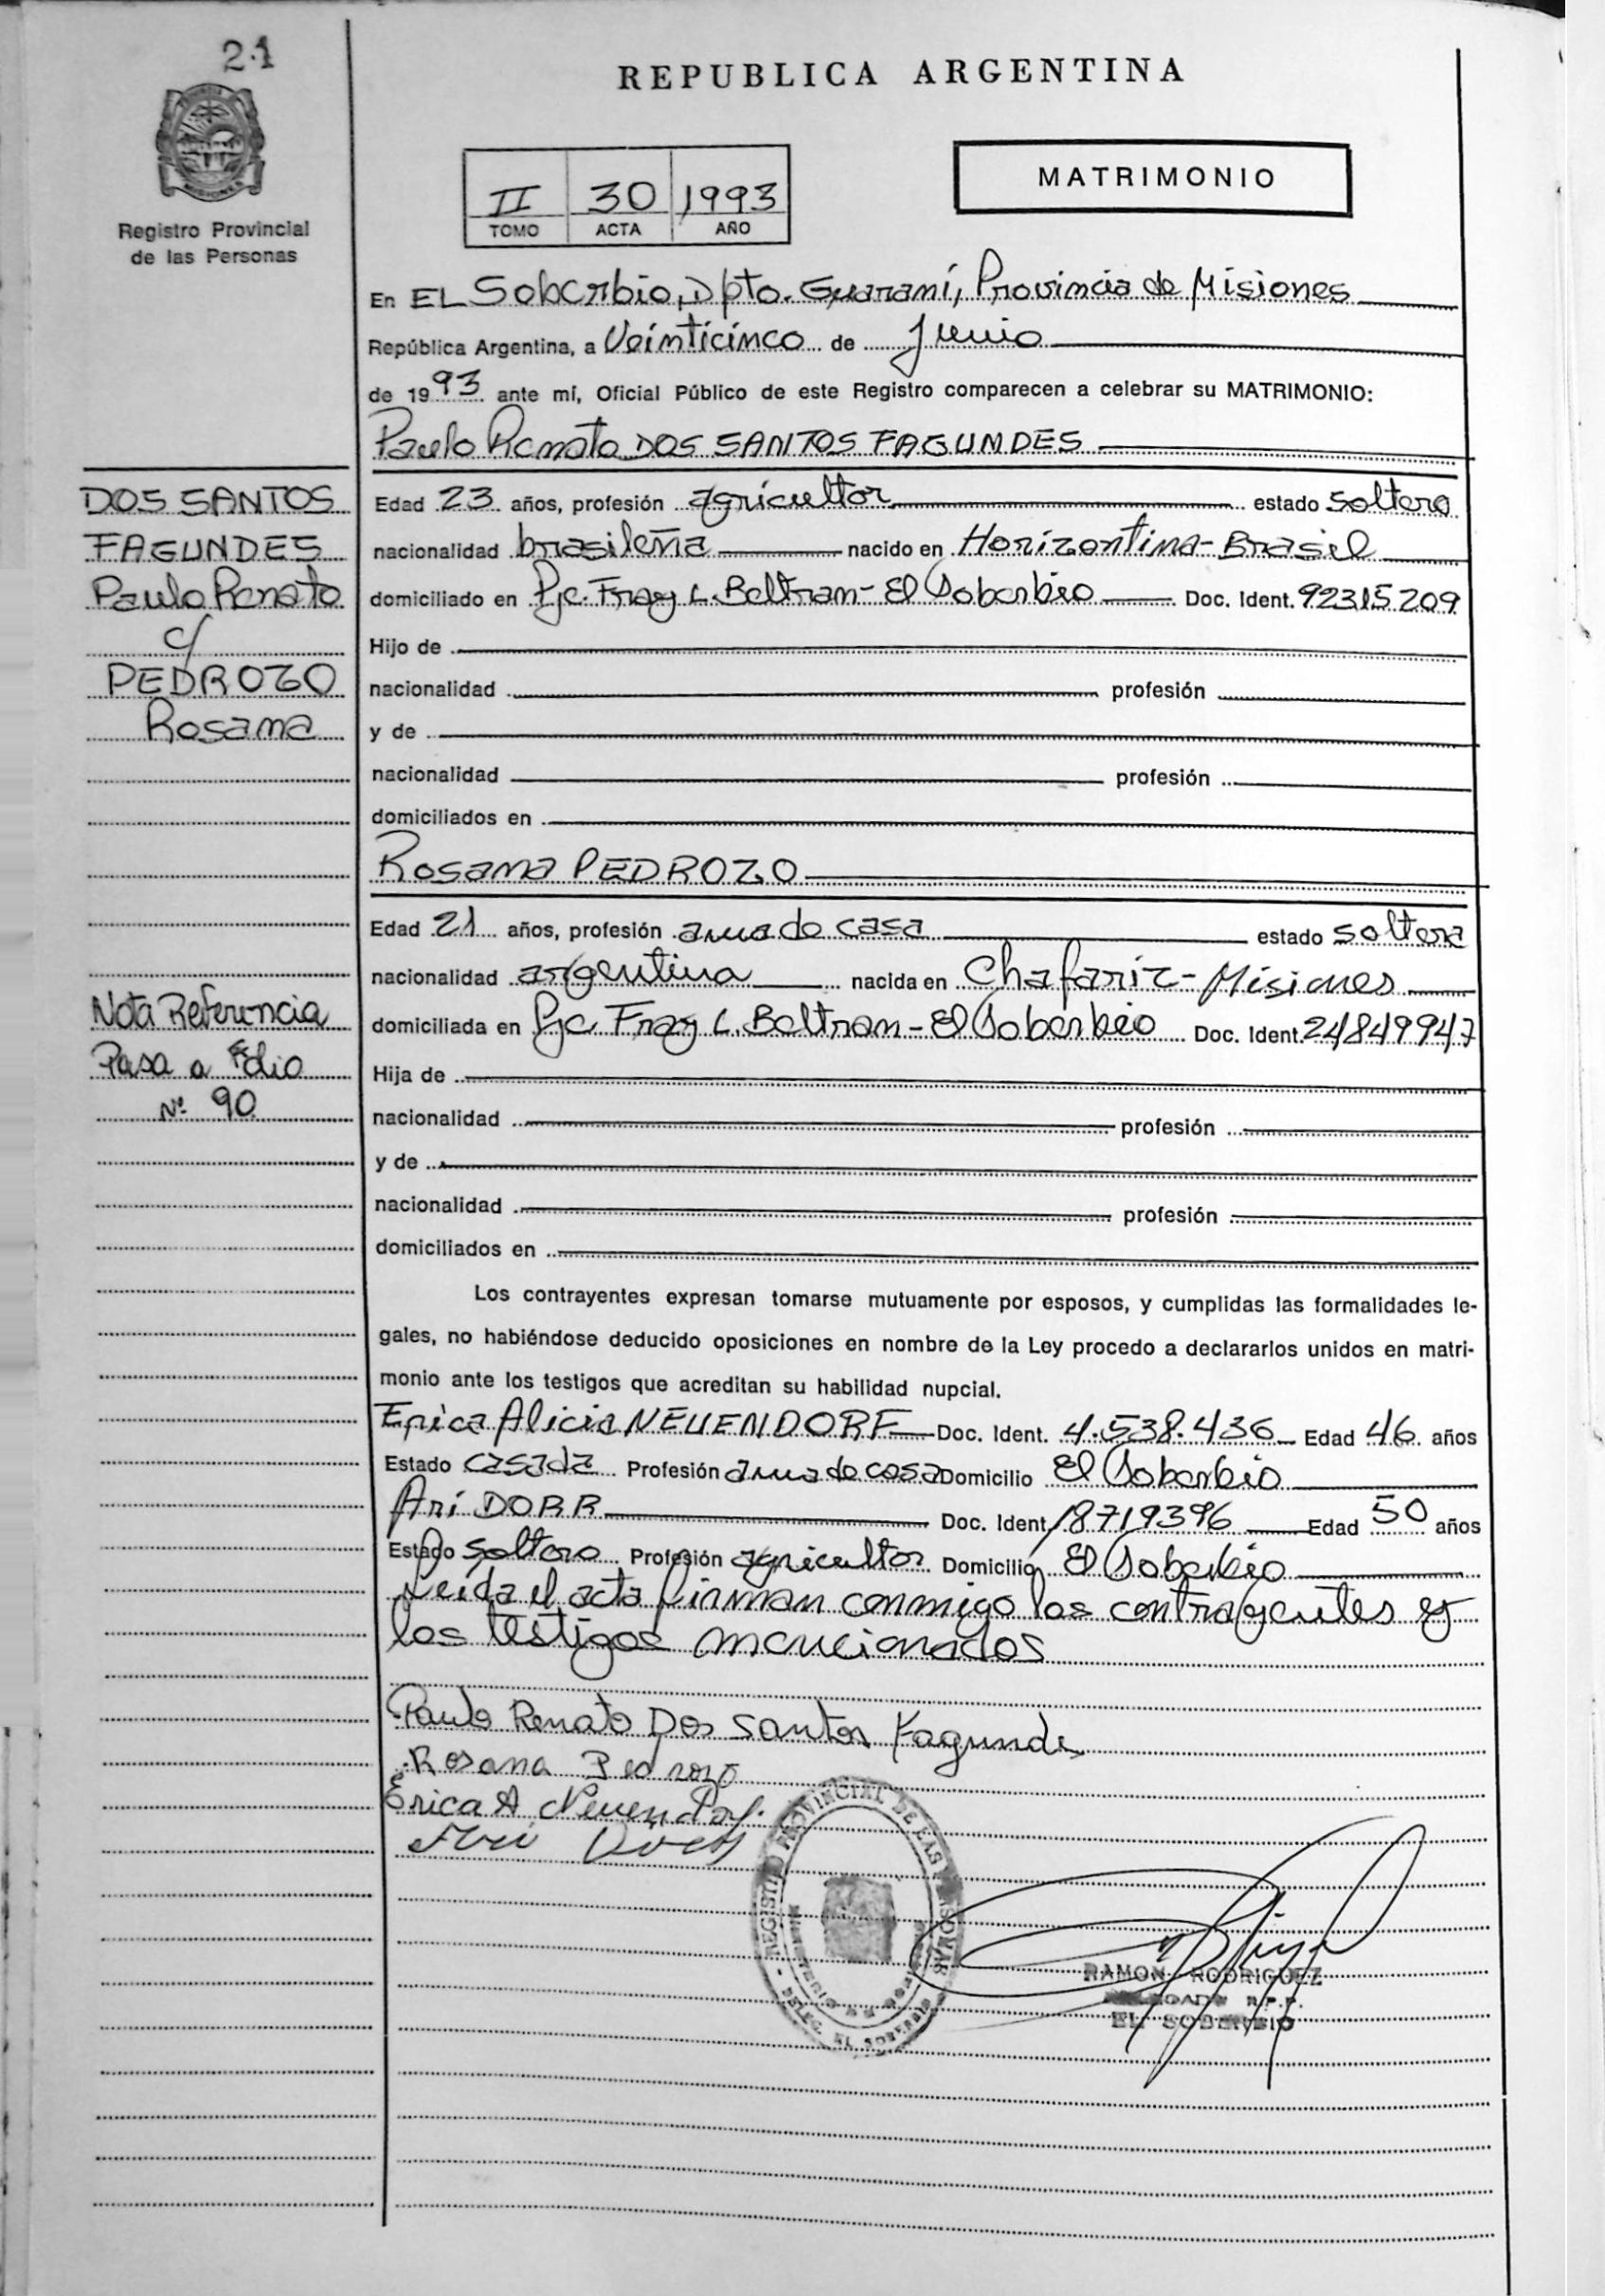 21
REPUBLICA ARGENTINA
Registro Provincial
de las Personas
II 30 1993
TOMO ACTA AÑO
MATRIMONIO
En EL Soberbio, Dpto. Guaraní, Provincia de Misiones
República Argentina, a Veinticinco de Junio
de 1993 ante mí, Oficial Público de este Registro comparecen a celebrar su MATRIMONIO:
Paulo Renato DOS SANTOS FAGUNDES
DOS SANTOS
FAGUNDES
Paulo Renato
c/
PEDROZO
Rosana
Nota Referencia
Pasa a Folio
Nº 90
Edad 23 años, profesión agricultor estado soltero
nacionalidad brasileña nacido en Horizontina - Brasil
domiciliado en Pje. Fray L. Beltran - El Soberbio Doc. Ident. 92315209
Hijo de
nacionalidad profesión
y de
nacionalidad profesión
domiciliados en
Rosana PEDROZO
Edad 21 años, profesión ama de casa estado soltera
nacionalidad argentina nacida en Chafariz - Misiones
domiciliada en Pje. Fray L. Beltran - El Soberbio Doc. Ident. 24849947
Hija de
nacionalidad profesión
y de
nacionalidad profesión
domiciliados en
Los contrayentes expresan tomarse mutuamente por esposos, y cumplidas las formalidades le-
gales, no habiéndose deducido oposiciones en nombre de la Ley procedo a declararlos unidos en matri-
monio ante los testigos que acreditan su habilidad nupcial.
Erica Alicia NEUENDORF Doc. Ident. 4.538.436 Edad 46 años
Estado casada Profesión ama de casa Domicilio El Soberbio
Ari DORR Doc. Ident. 18719396 Edad 50 años
Estado soltero Profesión agricultor Domicilio El Soberbio
Leída el acta firman conmigo los contrayentes y
los testigos mencionados
Paulo Renato Dos Santos Fagundes
Rosana Pedrozo
Erica A Neuendorf.
REGISTRO PROVINCIAL DE LAS PERSONAS
DELEG. EL SOBERBIO
RAMON RODRIGUEZ
DELEGADO R.P.P.
EL SOBERBIO